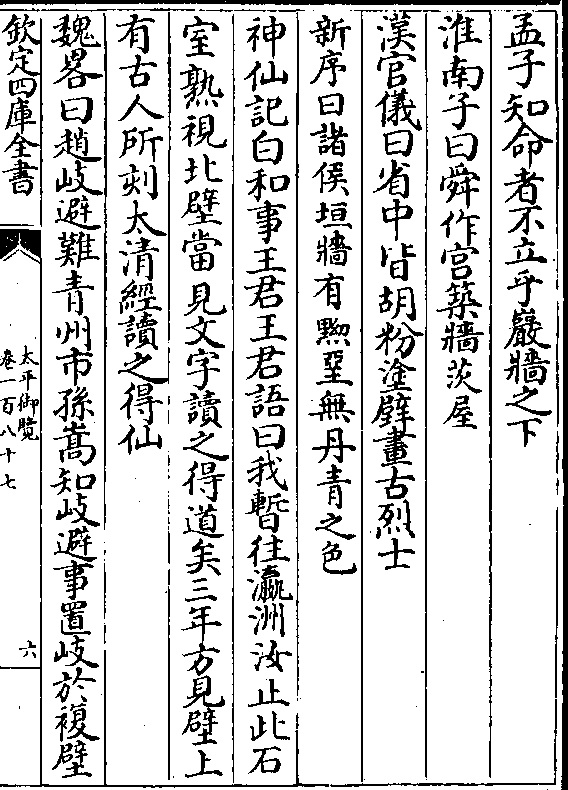 孟子知命者不立乎巖牆之下
淮南子曰舜作宫築牆茨屋
漢官儀曰省中皆胡粉塗壁畫古烈士
新序曰諸侯垣牆有黝堊無丹青之色
神仙記白和事王君王君語曰我暫往瀛洲汝止此石
室熟視北壁當見文字讀之得道矣三年方見壁上
有古人所刻太清經讀之得仙
魏畧曰趙岐避難青州市孫嵩知岐避事置岐於複壁
欽定四庫全書
太平御覽
卷一百八十七
六